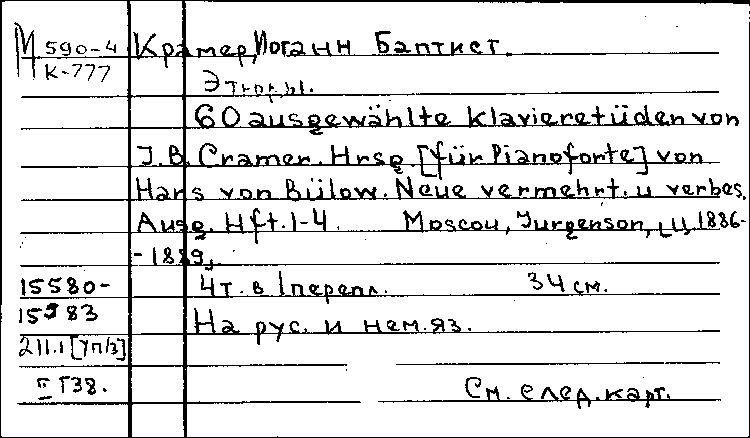 М 590-4 Крамер, Иоганн Баптист.
К-777
Этюды.
60 ausgewählte Klavieretüden von
J. B. Cramer. Hrsg. [für Pianoforte] von
Hans von Bülow. Neue vermehrt. u verbes.
Ausg. Hft. 1-4. Moscou, Jurgenson, 1886-
-1889,
15580- 4 т. в 1 перепл. 34 см.
15583 На рус. и нем. яз.
211.1 [Уп/з]
II Г38. См. след. карт.